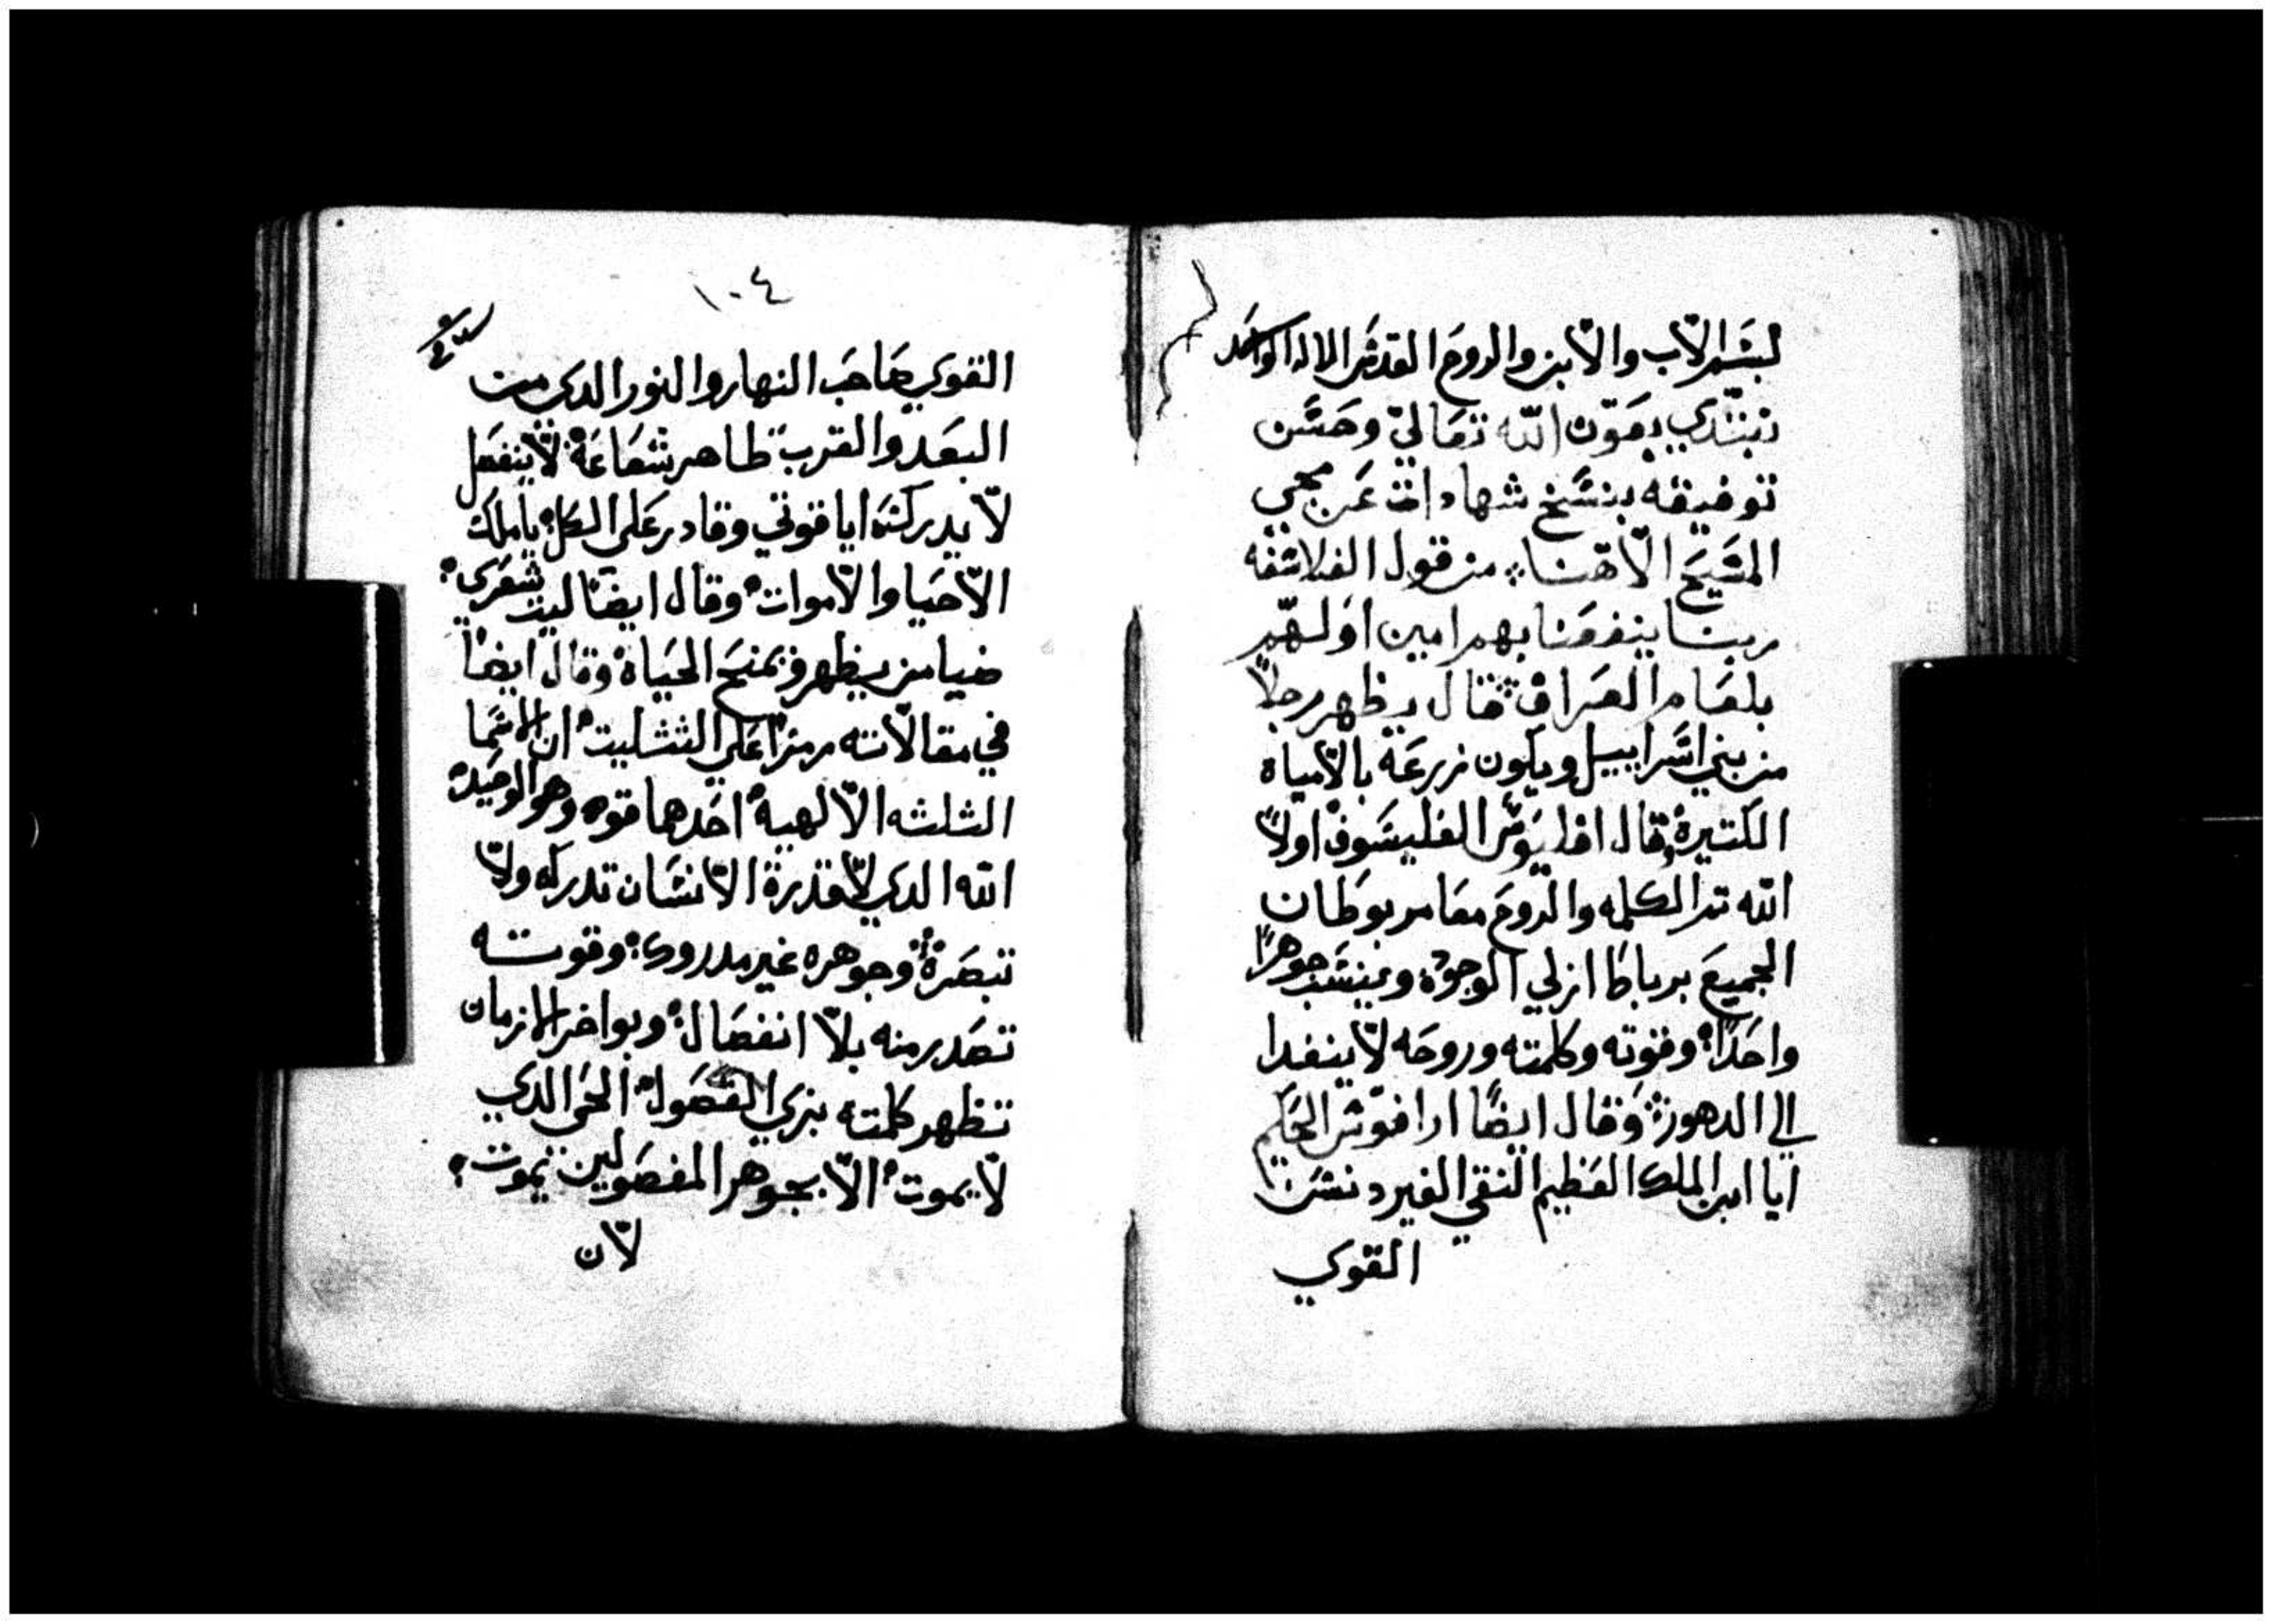 بسم الاب والابن والروح القدس الاله الواحد
نبتدي بعون الله تعالي وحسن
توفيقه بنسخ شهادات عن مجي
المسيح الاهنا من قول الفلاسفه
ربنا ينفعنا بهم امين اولهم
بلعام العراف قال يظهر رجلاً
من بني اسراييل ويكون زرعة بالامياة
الكتيرة وقال الفليسوف اولاً
الله تم الكلمه والروح معا مربوطان
الجميع برباط ازلي الوجود جوهراً
واحداً وقوته وكلمته وروحه لا ينفدا
الي الدهور وقال ايضاً ارافوس الحكيم
ايا ابن الملك العظيم النقي الغير دنس
القوي
١٠٤
القوي صاحب النهار والنور الدي من
البعد والقرب ظاهر شعاعة لا ينفصل
لا يدرك ايا قوتي وقادر علي الكل يا ملك
الاحيا والاموات وقال ايضا ليت شعري
ضيا من يظهر ويمنح الحياة وقال ايضاً
في مقالاته رمزاً علي التتليت ان الاسما
الثلثه الالهية احدها قوه وهو الوحيد
الله الدي لا قدرة الانسان تدركه ولا
تبصرة وجوهره غير مدروك وقوته
تصدر منه بلا انفصال وبواخر الازمان
تظهر كلمته بزي الفصول الحي الدي
لا يموت الا بجوهر المفصولين يموت
لان